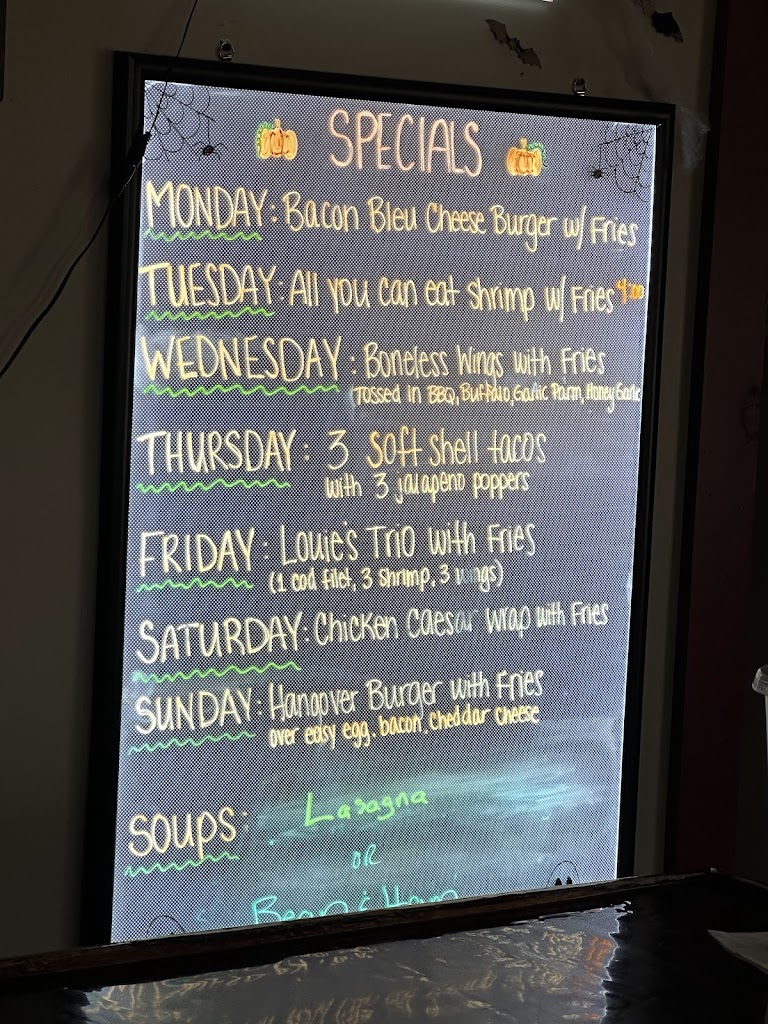 SPECIALS
MONDAY: Bacon Bleu Cheese Burger w/ Fries
TUESDAY: All you can eat shrimp w/ Fries 4:00
WEDNESDAY: Boneless Wings with Fries
(Tossed in BBQ, Buffalo, Garlic Parm, Honey Garlic
THURSDAY: 3 soft shell tacos
with 3 jalapeno poppers
FRIDAY: Louie's Trio with Fries
(1 cod filet, 3 shrimp, 3 wings)
SATURDAY: Chicken Caesar wrap with Fries
SUNDAY: Hangover Burger with Fries
over easy egg, bacon, cheddar cheese
SOUPS: Lasagna
OR
Bean & Ham